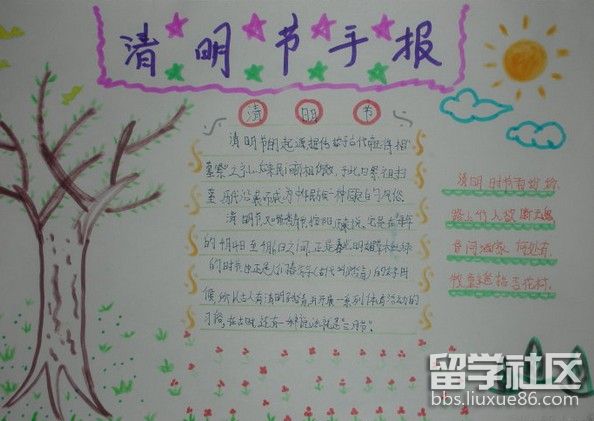 清明节手报
清明节
清明节的起源据传始于古代帝王将相“
墓祭”之礼，后来民间亦相仿效，于此日祭祖扫
墓，历代沿袭而成为中华民族一种固定的风俗
清明节又叫踏青节，按阳历来说，它是在每年
的4月4日至4月6日之间，正是春光明媚草木吐绿
的时节，也正是人们春游（古代叫踏青）的好时
候，所以古人有清明踏青，并开展一系列体育活动的
习俗，在古时，还有一种说法就是“三月节”。
清明时节雨纷纷
路上行人欲断魂
借问酒家何处有
牧童遥指杏花村
留学社区
bbs.liuxue86.com